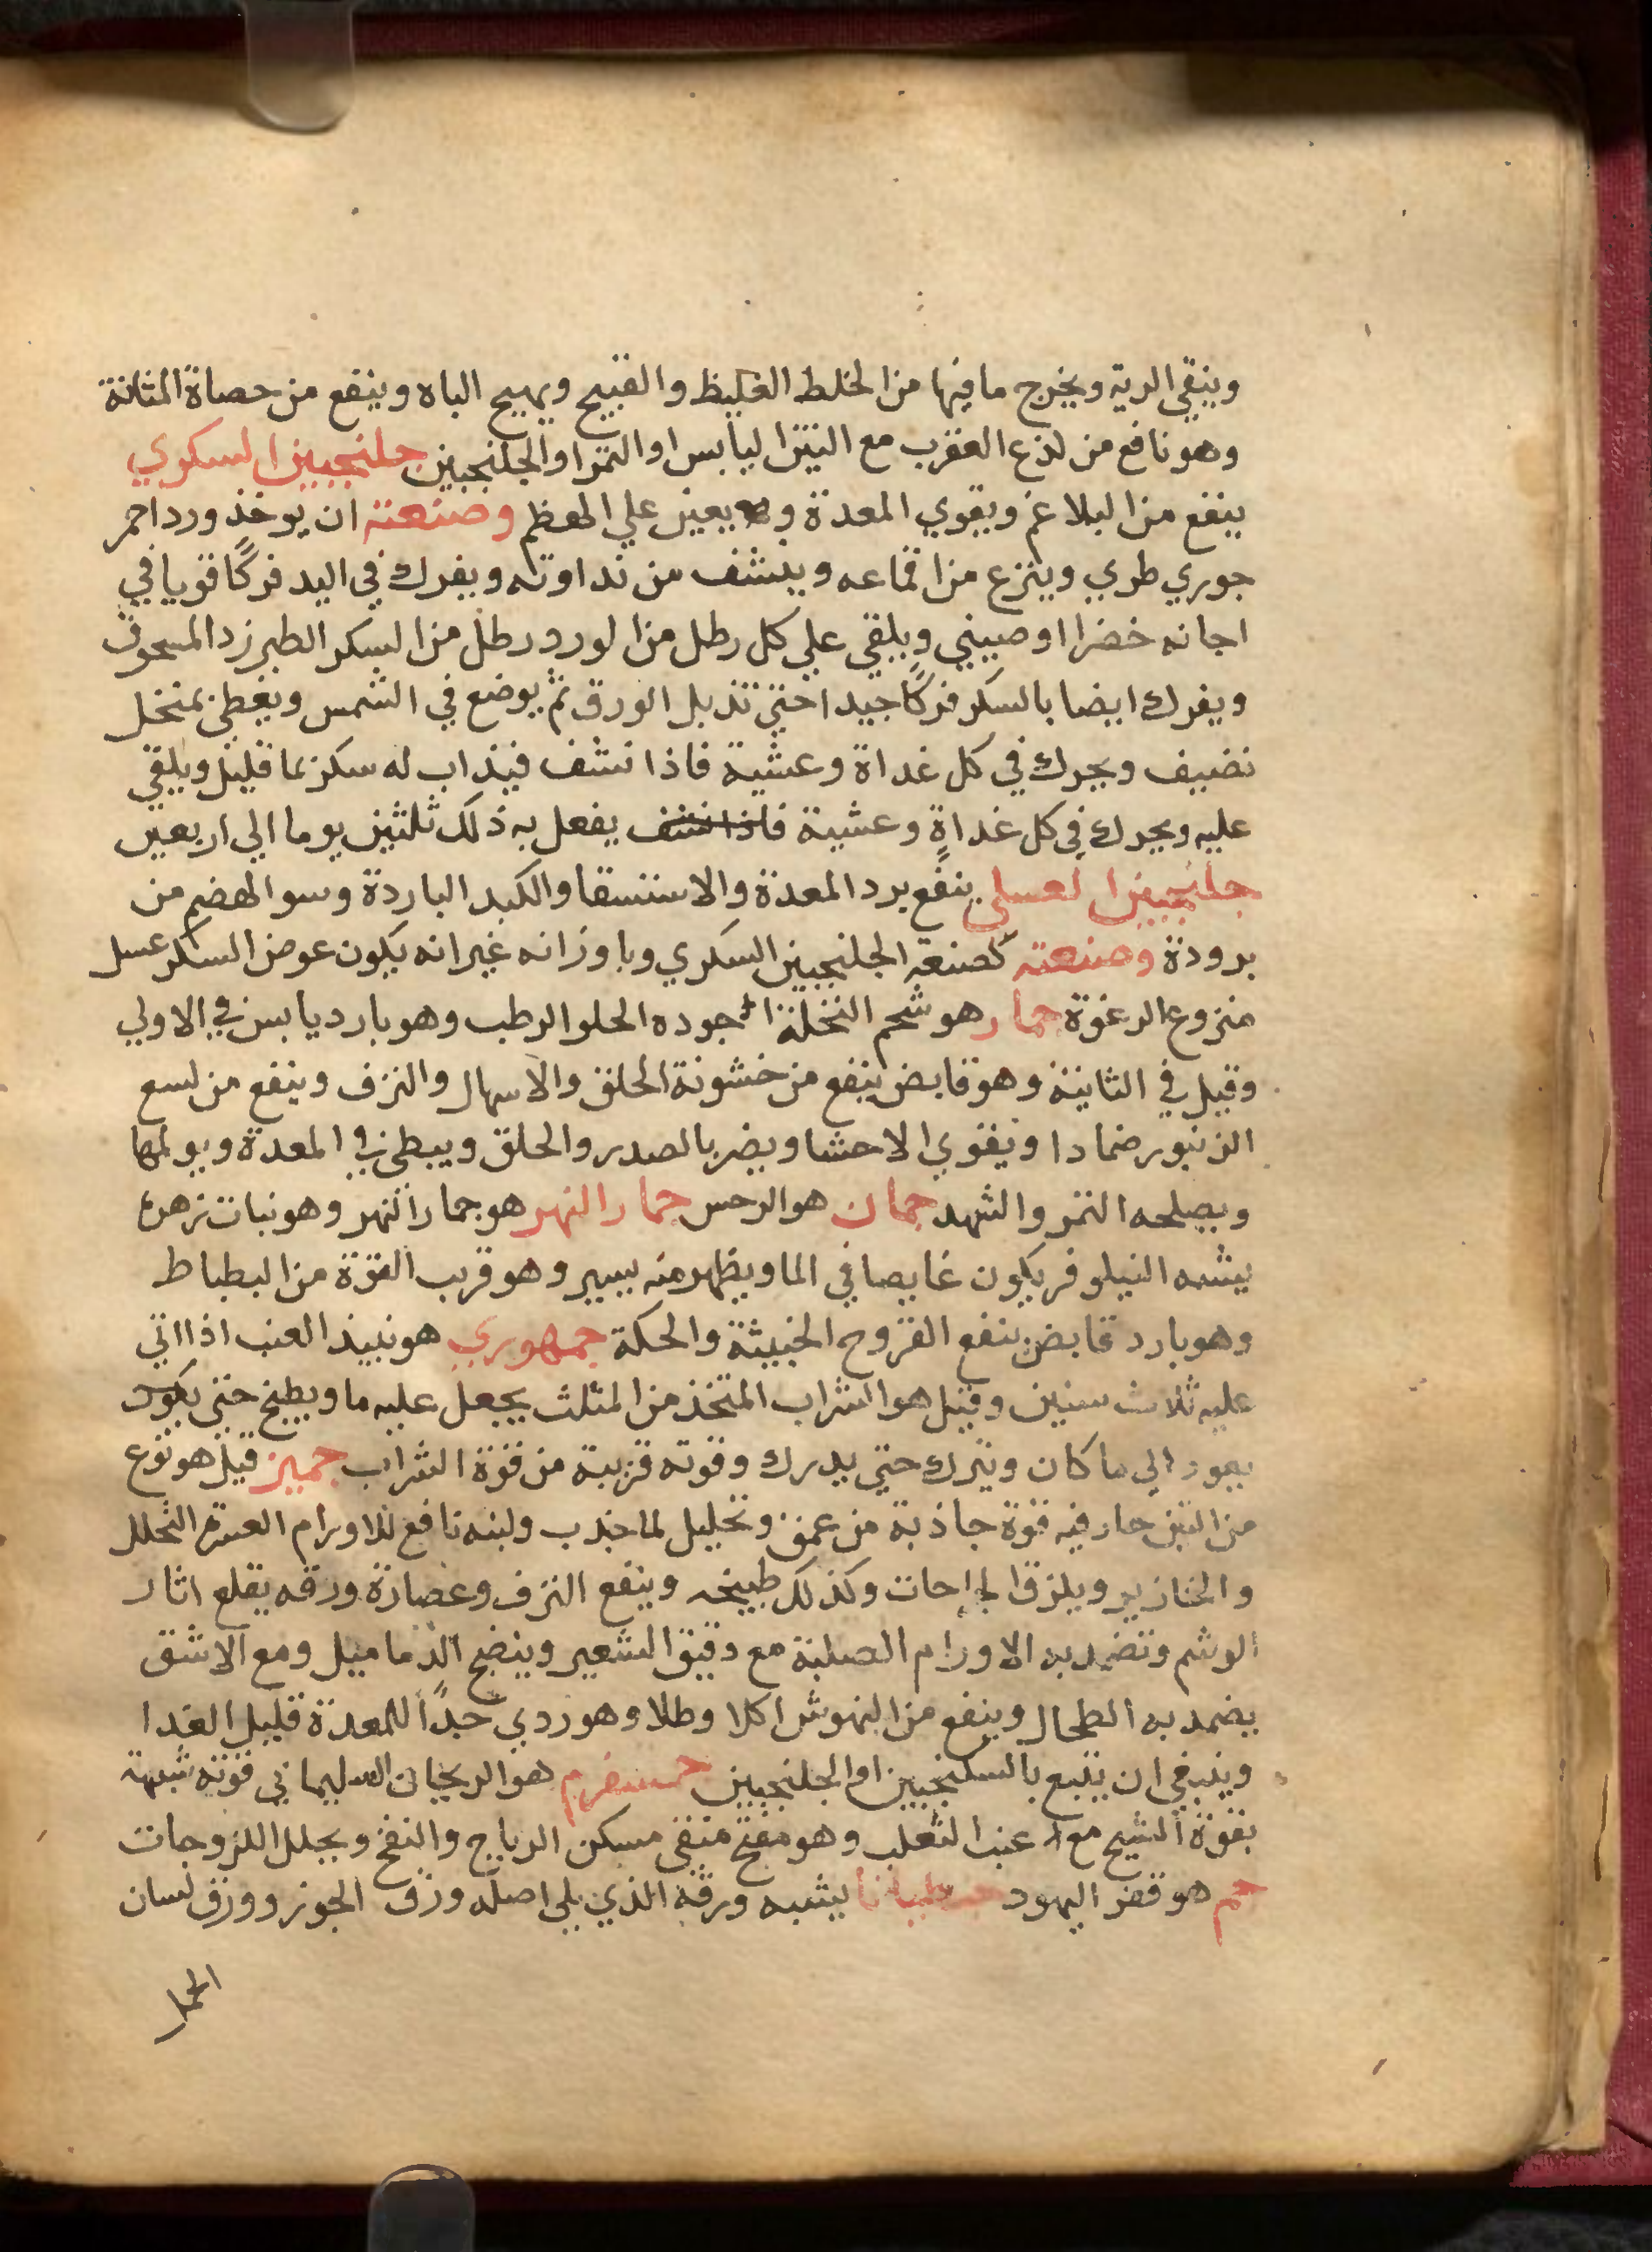 وينقي الرية ويخرج ما فيها من الخلط الغليظ والقيح ويهيج الباه وينفع من حصاة المثانة
وهو نافع من لذع العقرب مع التين اليابس او التمر او الجلنجبين جلنجبين السكري
ينفع من البلاغم ويقوي المعدة و يعين علي الهظم وصنعته ان يوخذ ورد احمر
جوري طري وينزع من اقماعه وينشف من نداوته ويفرك في اليد فركًا قويا في
اجانه خضرا او صيني ويلقي علي كل رطل من الورد رطل من السكر الطبرزد المسحوق
ويفرك ايضا بالسكر فركًا جيدا حتي تذبل الورق ثم يوضع في الشمس ويغطي بمنخل
نضيف ويحرك في كل غداة وعشية فاذا نشف فيذاب له سكر بما قليل ويلقي
عليه ويحرك في كل غداة وعشية فاذا نشف يفعل به ذلك ثلثين يوما الي اربعين
جلنجبين العسلي ينفع برد المعدة والاستسقا والكبد الباردة وسو الهضم من
برودة وصنعته كصنعة الجلنجبين السكري وباوزانه غير انه يكون عوض السكر عسل
منزوع الرغوة جمار هو شحم النخلة اجوده الحلو الرطب وهو بارد يابس في الاولي
وقيل في الثانية وهو قابض ينفع من خشونة الحلق والاسهال والنزف وينفع من لسع
الزنبور ضمادا ويقوي الاحشا ويضر بالصدر والحلق ويبطي في المعدة ويولمها
ويصلحه التمر والشهد جمان هو الرحس جمار النهر هو جمار النهر وهو نبات زهره
يشبه النيلوفر يكون غايصا في الما ويظهر منه يسير وهو قريب القوة من البطباط
وهو بارد قابض ينفع القروح الخبيثة والحكة جمهوري هو نبيذ العنب اذا اتي
عليه ثلاث سنين وقيل هو الشراب المتخذ من المثلث يجعل عليه ما ويطبخ حتي يكون
يعود الي ما كان ويترك حتي يدرك وقوته قريبة من قوة الشراب جميز قيل هو نوع
من التين حار فيه قوة جاذبة من عمق وتحليل لما جذب ولبنه نافع للاورام العسرة التحلل
والخنازير ويلزق الجراحات وكذلك طبيخه وينفع النزف وعصارة ورقه يقلع اثار
الوشم وتضمد به الاورام الصلبة مع دقيق الشعير وينضج الدماميل ومع الاشق
يضمد به الطحال وينفع من النهوش اكلا وطلا وهو ردي جدًا للمعدة قليل الغدا
وينبغي ان يتبع بالسكنجبين او الجلنجبين جمسفرم هو الريحان السليماني قوته شبيهة
بقوة الشيح مع عنب الثعلب وهو مفتح منقي مسكن الرياح والنفخ ويحلل اللزوجات
جم هو قفر اليهود جنطيانا يشبه ورقه الذي يلي اصله ورق الجوز وورق لسان
الحمل